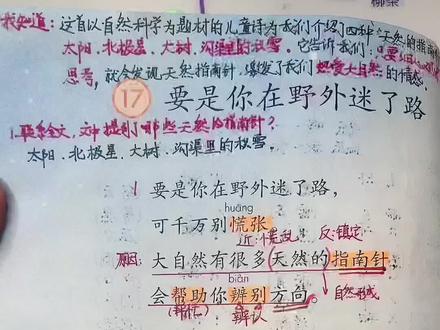 我知道：这首以自然科学为题材的儿童诗为我们介绍了四种"天然的指南针
太阳、北极星、大树、沟渠里的积雪。它告诉我们：只要细心
思考，就会发现天然指南针，激发了我们热爱大自然的情感。
17 要是你在野外迷了路
1.联系全文，文中提到了哪些天然的指南针？
太阳、北极星、大树、沟渠里的积雪。
1 要是你在野外迷了路，
huāng
可千万别慌张
近：慌乱 反：镇定
原因： 大自然有很多(天然的)指南针，
biàn 自然形成
会帮助你辨别方向。
(帮忙) 辨认